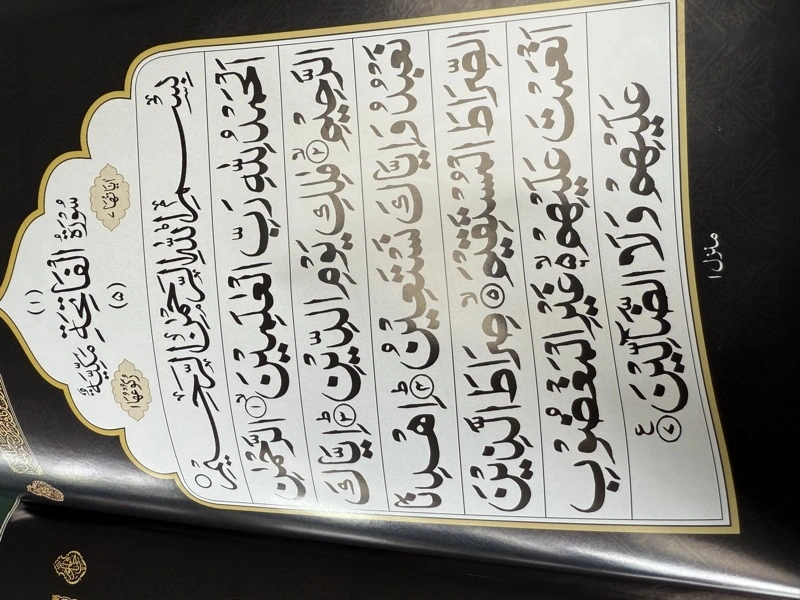 (١)
سُوْرَةُ الْفَاتِحَةِ مَكِّيَّةٌ
اٰيَاتُهَا ٧
(٥)
رُكُوْعُهَا ١
بِسْمِ اللّٰهِ الرَّحْمٰنِ الرَّحِيْمِ
اَلْحَمْدُ لِلّٰهِ رَبِّ الْعٰلَمِيْنَ ۙ﴿١﴾ الرَّحْمٰنِ
الرَّحِيْمِ ۙ﴿٢﴾ مٰلِكِ يَوْمِ الدِّيْنِ ؕ﴿٣﴾ اِيَّاكَ
نَعْبُدُ وَ اِيَّاكَ نَسْتَعِيْنُ ؕ﴿٤﴾ اِهْدِنَا
الصِّرَاطَ الْمُسْتَقِيْمَ ۙ﴿٥﴾ صِرَاطَ الَّذِيْنَ
اَنْعَمْتَ عَلَيْهِمْ ۙ۬ ﴿٦﴾ غَيْرِ الْمَغْضُوْبِ
عَلَيْهِمْ وَ لَا الضَّآلِّيْنَ ﴿٧﴾ ع
منزل ١